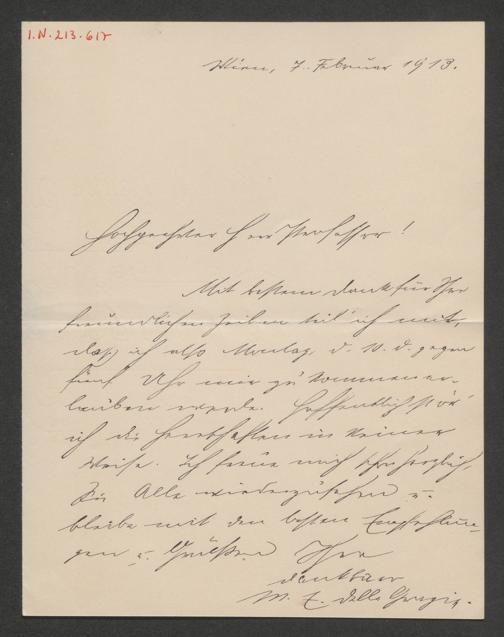 I.N. 213.617
Wien, 7. Februar 1913.
Hochgeehrter Herr Professor!
Mit bestem Dank für Ihre
freundlichen Zeilen teil' ich mit,
daß ich also Montag, d. 10. d. gegen
fünf Uhr mir zu kommen er-
lauben werde. Hoffentlich stör'
ich die Herrschaften in keiner
Weise. Ich freue mich schon herzlich,
Sie Alle wiederzusehen u.
bleibe mit den besten Empfehlun-
gen u. Grüßen Ihre
dankbare
M. E. delle Grazie.